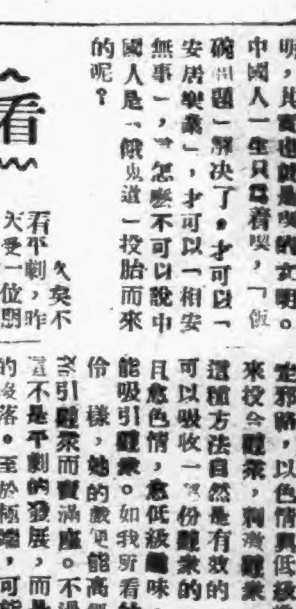 明，其實也就是喫的文明。
中國人一生只爲着喫，「飯
碗問題」解決了，才可以「
安居樂業」，才可以「相安
無事」，怎麽不可以說中
國人是「餓鬼道」投胎而來
的呢？
看
久矣不
看平劇，昨
天受一位
定邪路，以色情與低級
來投合聽衆，刺激聽衆
這種方法自然是有效的
可以吸收一部份聽衆的
且愈色情，愈低級趣味，
能吸引聽衆。如我所看
伶樣，她的戲便能高
引聽衆而賣滿座。不過
這不是平劇的發展，而是
的沒落。至於極端，可能